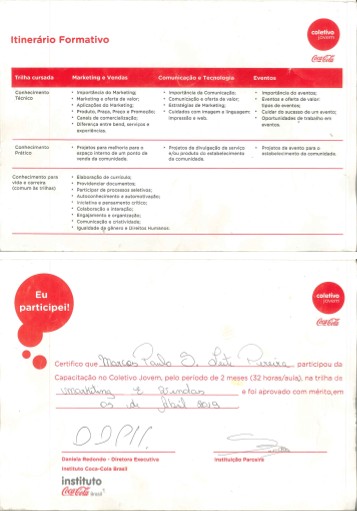 Itinerário Formativo
coletivo
jovem
Coca-Cola
Trilha cursada Marketing e Vendas Comunicação e Tecnologia Eventos
Conhecimento Técnico
• Importância do Marketing;
• Marketing e oferta de valor;
• Aplicações do Marketing;
• Produto, Praça, Preço e Promoção;
• Canais de comercialização;
• Diferença entre bens, serviços e experiências.
• Importância da Comunicação;
• Comunicação e oferta de valor;
• Estratégias de Marketing;
• Cuidados com imagem e linguagem: impressão à web.
• Importância do evento;
• Eventos e oferta de valor: tipos de eventos;
• Cuidar do sucesso de um evento;
• Oportunidades de trabalho em eventos.
Conhecimento Prático
• Projetos para melhoria para o espaço interno de um ponto de venda da comunidade.
• Projetos de divulgação de serviço e/ou produto do estabelecimento da comunidade.
• Projetos de evento para o estabelecimento da comunidade.
Conhecimento para vida e carreira (comum às trilhas)
• Elaboração de currículo;
• Providenciar documentos;
• Participar de processos seletivos;
• Autoconhecimento e automotivação;
• Iniciativa e pensamento crítico;
• Colaboração e interação;
• Engajamento e organização;
• Comunicação e criatividade;
• Igualdade de gênero e Direitos Humanos.
Eu
participei!
coletivo
jovem
Coca-Cola
Certifico que Marcos Paulo S. Leite Pereira participou da
Capacitação no Coletivo Jovem, pelo período de 2 meses (32 horas/aula), na trilha de
Marketing e Vendas e foi aprovado com mérito, em
05 de Abril 2019
Daniela Redondo - Diretora Executiva
Instituto Coca-Cola Brasil
Instituição Parceira
instituto
Coca-Cola Brasil